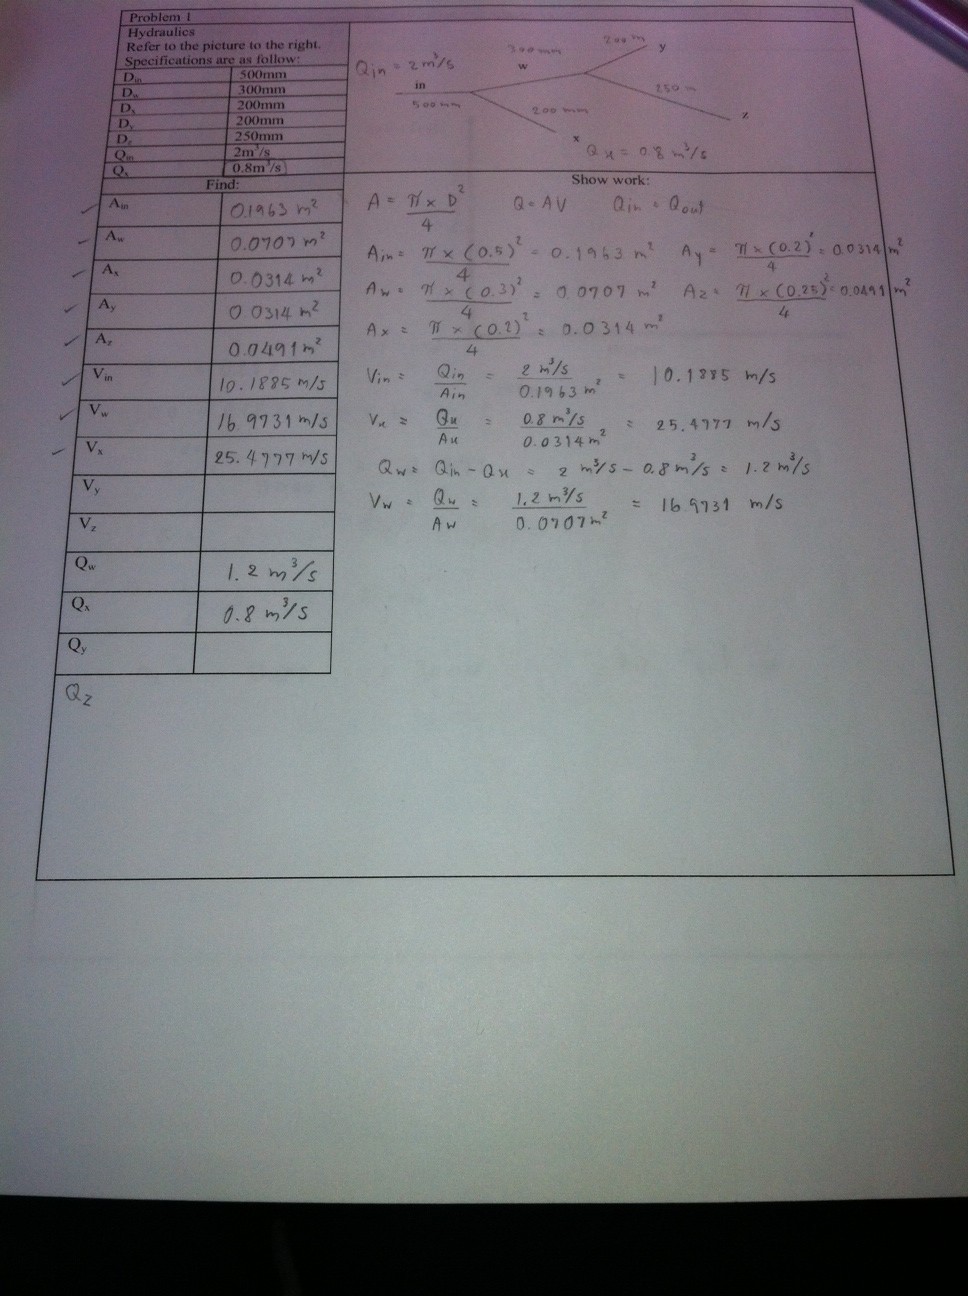 Problem 1
Hydraulics
Refer to the picture to the right.
Specifications are as follow:
D_in 500mm
D_w 300mm
D_x 200mm
D_y 200mm
D_z 250mm
Q_in 2m³/s
Q_x 0.8m³/s
Q_in = 2 m³/s
in
500 mm
300mm
w
200 m
y
250 m
z
200 mm
x
Q_x = 0.8 m³/s
Find:
A_in 0.1963 m²
A_w 0.0707 m²
A_x 0.0314 m²
A_y 0.0314 m²
A_z 0.0491 m²
V_in 10.1885 m/s
V_w 16.9731 m/s
V_x 25.4777 m/s
V_y
V_z
Q_w 1.2 m³/s
Q_x 0.8 m³/s
Q_y
Q_z
Show work:
A = π × D² / 4 Q = AV Qin = Qout
Ain = π × (0.5)² / 4 = 0.1963 m² Ay = π × (0.2)² / 4 = 0.0314 m²
Aw = π × (0.3)² / 4 = 0.0707 m² Az = π × (0.25)² / 4 = 0.0491 m²
Ax = π × (0.2)² / 4 = 0.0314 m²
Vin = Qin / Ain = 2 m³/s / 0.1963 m² = 10.1885 m/s
Vx = Qx / Ax = 0.8 m³/s / 0.0314 m² = 25.4777 m/s
Qw = Qin - Qx = 2 m³/s - 0.8 m³/s = 1.2 m³/s
Vw = Qw / Aw = 1.2 m³/s / 0.0707 m² = 16.9731 m/s